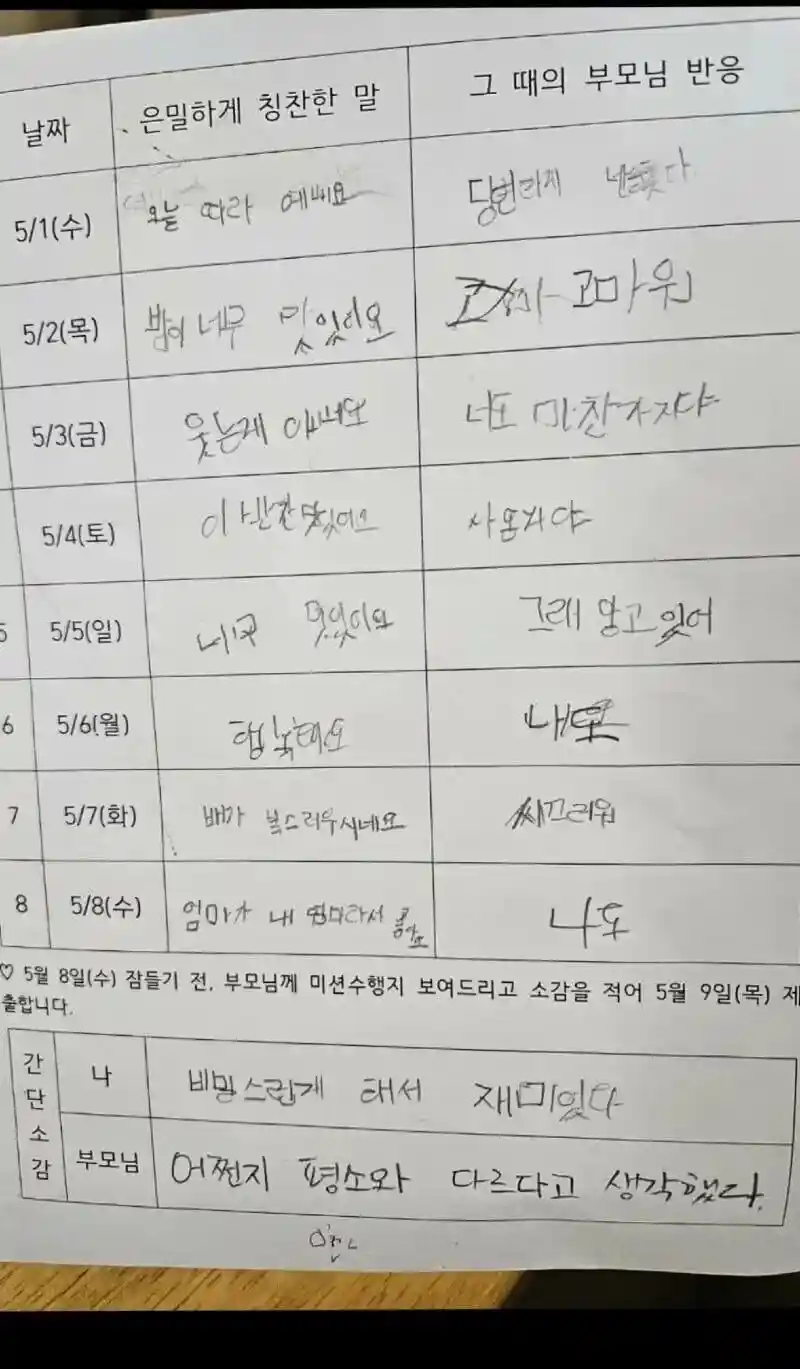 날짜 은밀하게 칭찬한 말 그 때의 부모님 반응
5/1(수) 오늘 따라 예뻐요 당연하지
5/2(목) 밥이 너무 맛있어요 고마워
5/3(금) 웃는게 너도 마찬가지다
5/4(토) 이 맛있어요
5 5/5(일) 너무 멋있어요 그래 알고 있어
6 5/6(월) 행복해요
7 5/7(화) 배가 복스러우시네요 씨끄러워
8 5/8(수) 엄마가 내 엄마라서 좋아요 나도
♡ 5월 8일(수) 잠들기 전, 부모님께 미션수행지 보여드리고 소감을 적어 5월 9일(목) 제
출합니다.
간단소감
나 비밀스럽게 해서 재미있다
부모님 어쩐지 평소와 다르다고 생각했다.